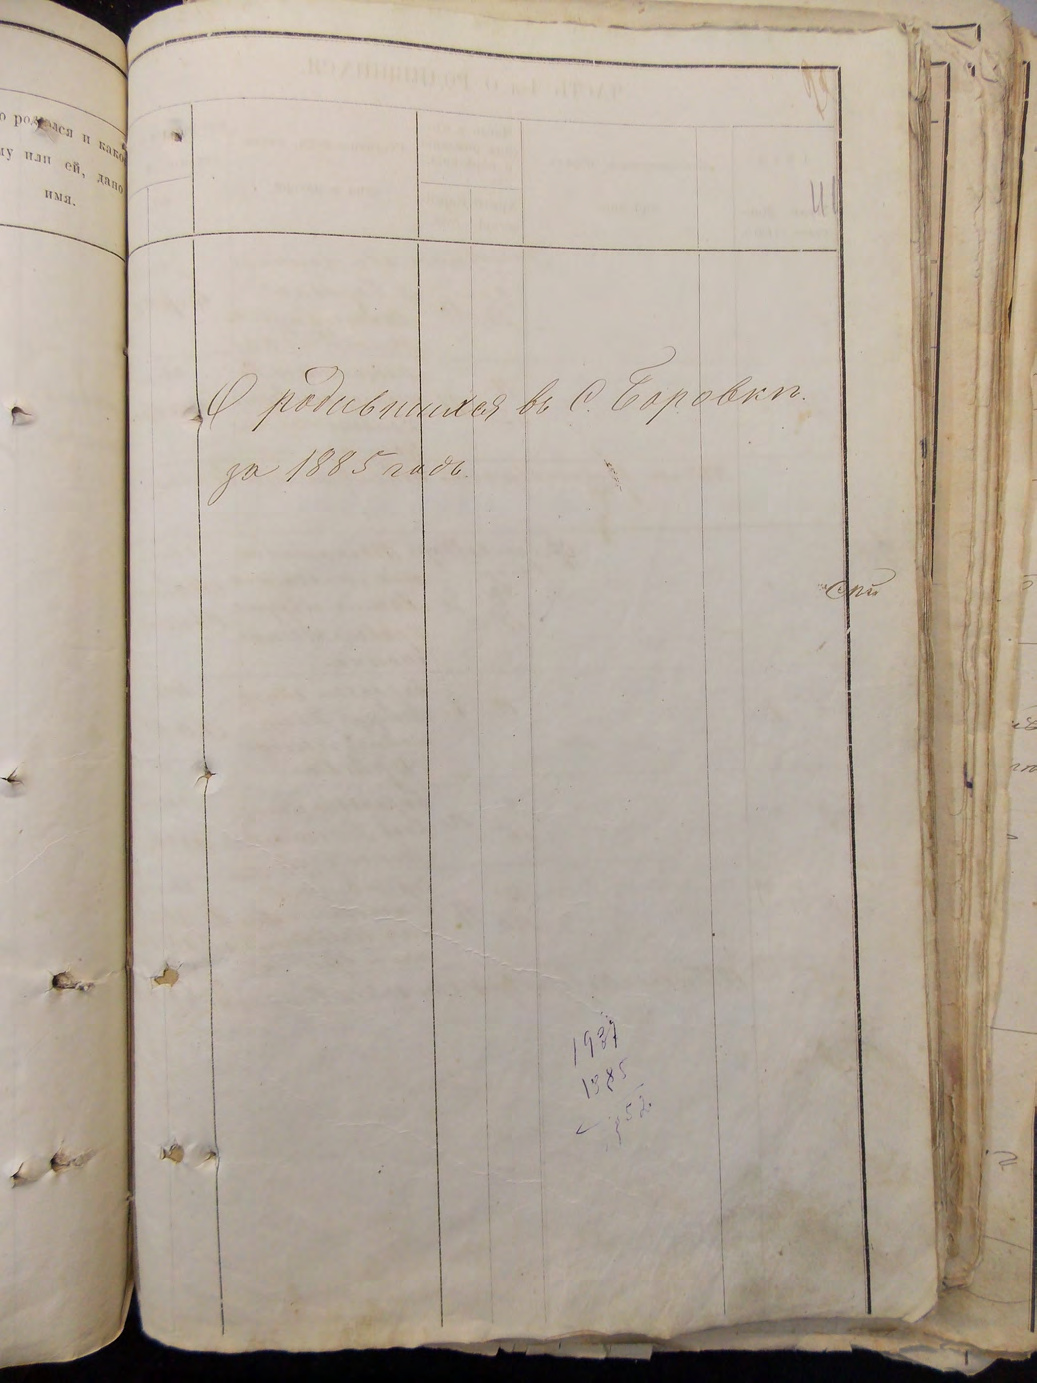 родился и како
му или ей, дано
имя.
О родившихся въ С. Боровкѣ.
за 1885 годъ.
1937
1885
52